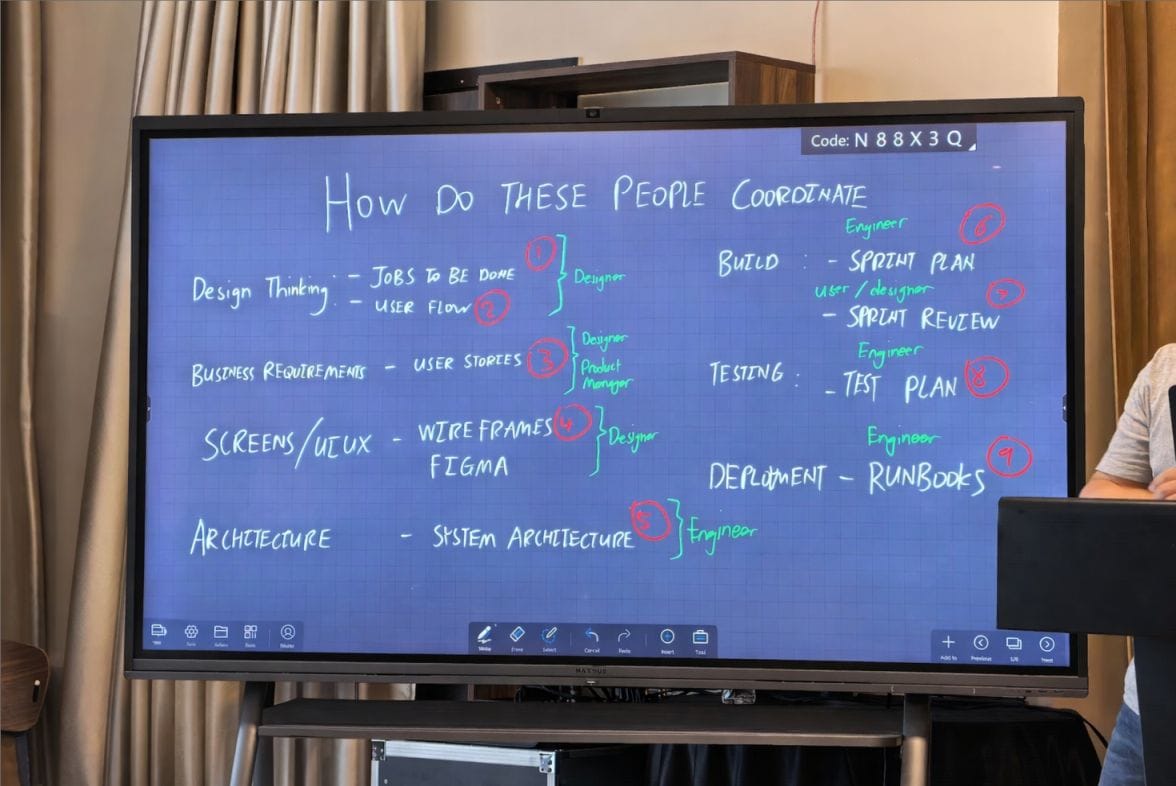 Code: N 8 8 X 3 Q
HOW DO THESE PEOPLE COORDINATE
Design Thinking: - JOBS TO BE DONE 1
- USER FLOW 2
Designer
BUSINESS REQUIREMENTS - USER STORIES 3
Designer
Product
Manager
SCREENS/UIUX - WIREFRAMES 4
FIGMA
Designer
ARCHITECTURE - SYSTEM ARCHITECTURE 5
Engineer
Engineer
BUILD : - SPRINT PLAN 6
user/designer
- SPRINT REVIEW 7
Engineer
TESTING :
- TEST PLAN 8
Engineer
DEPLOYMENT - RUNBOOKS 9
Write Erase Select Cancel Redo Insert Tool
Add to Previous 5/6 Next
MAXHUB